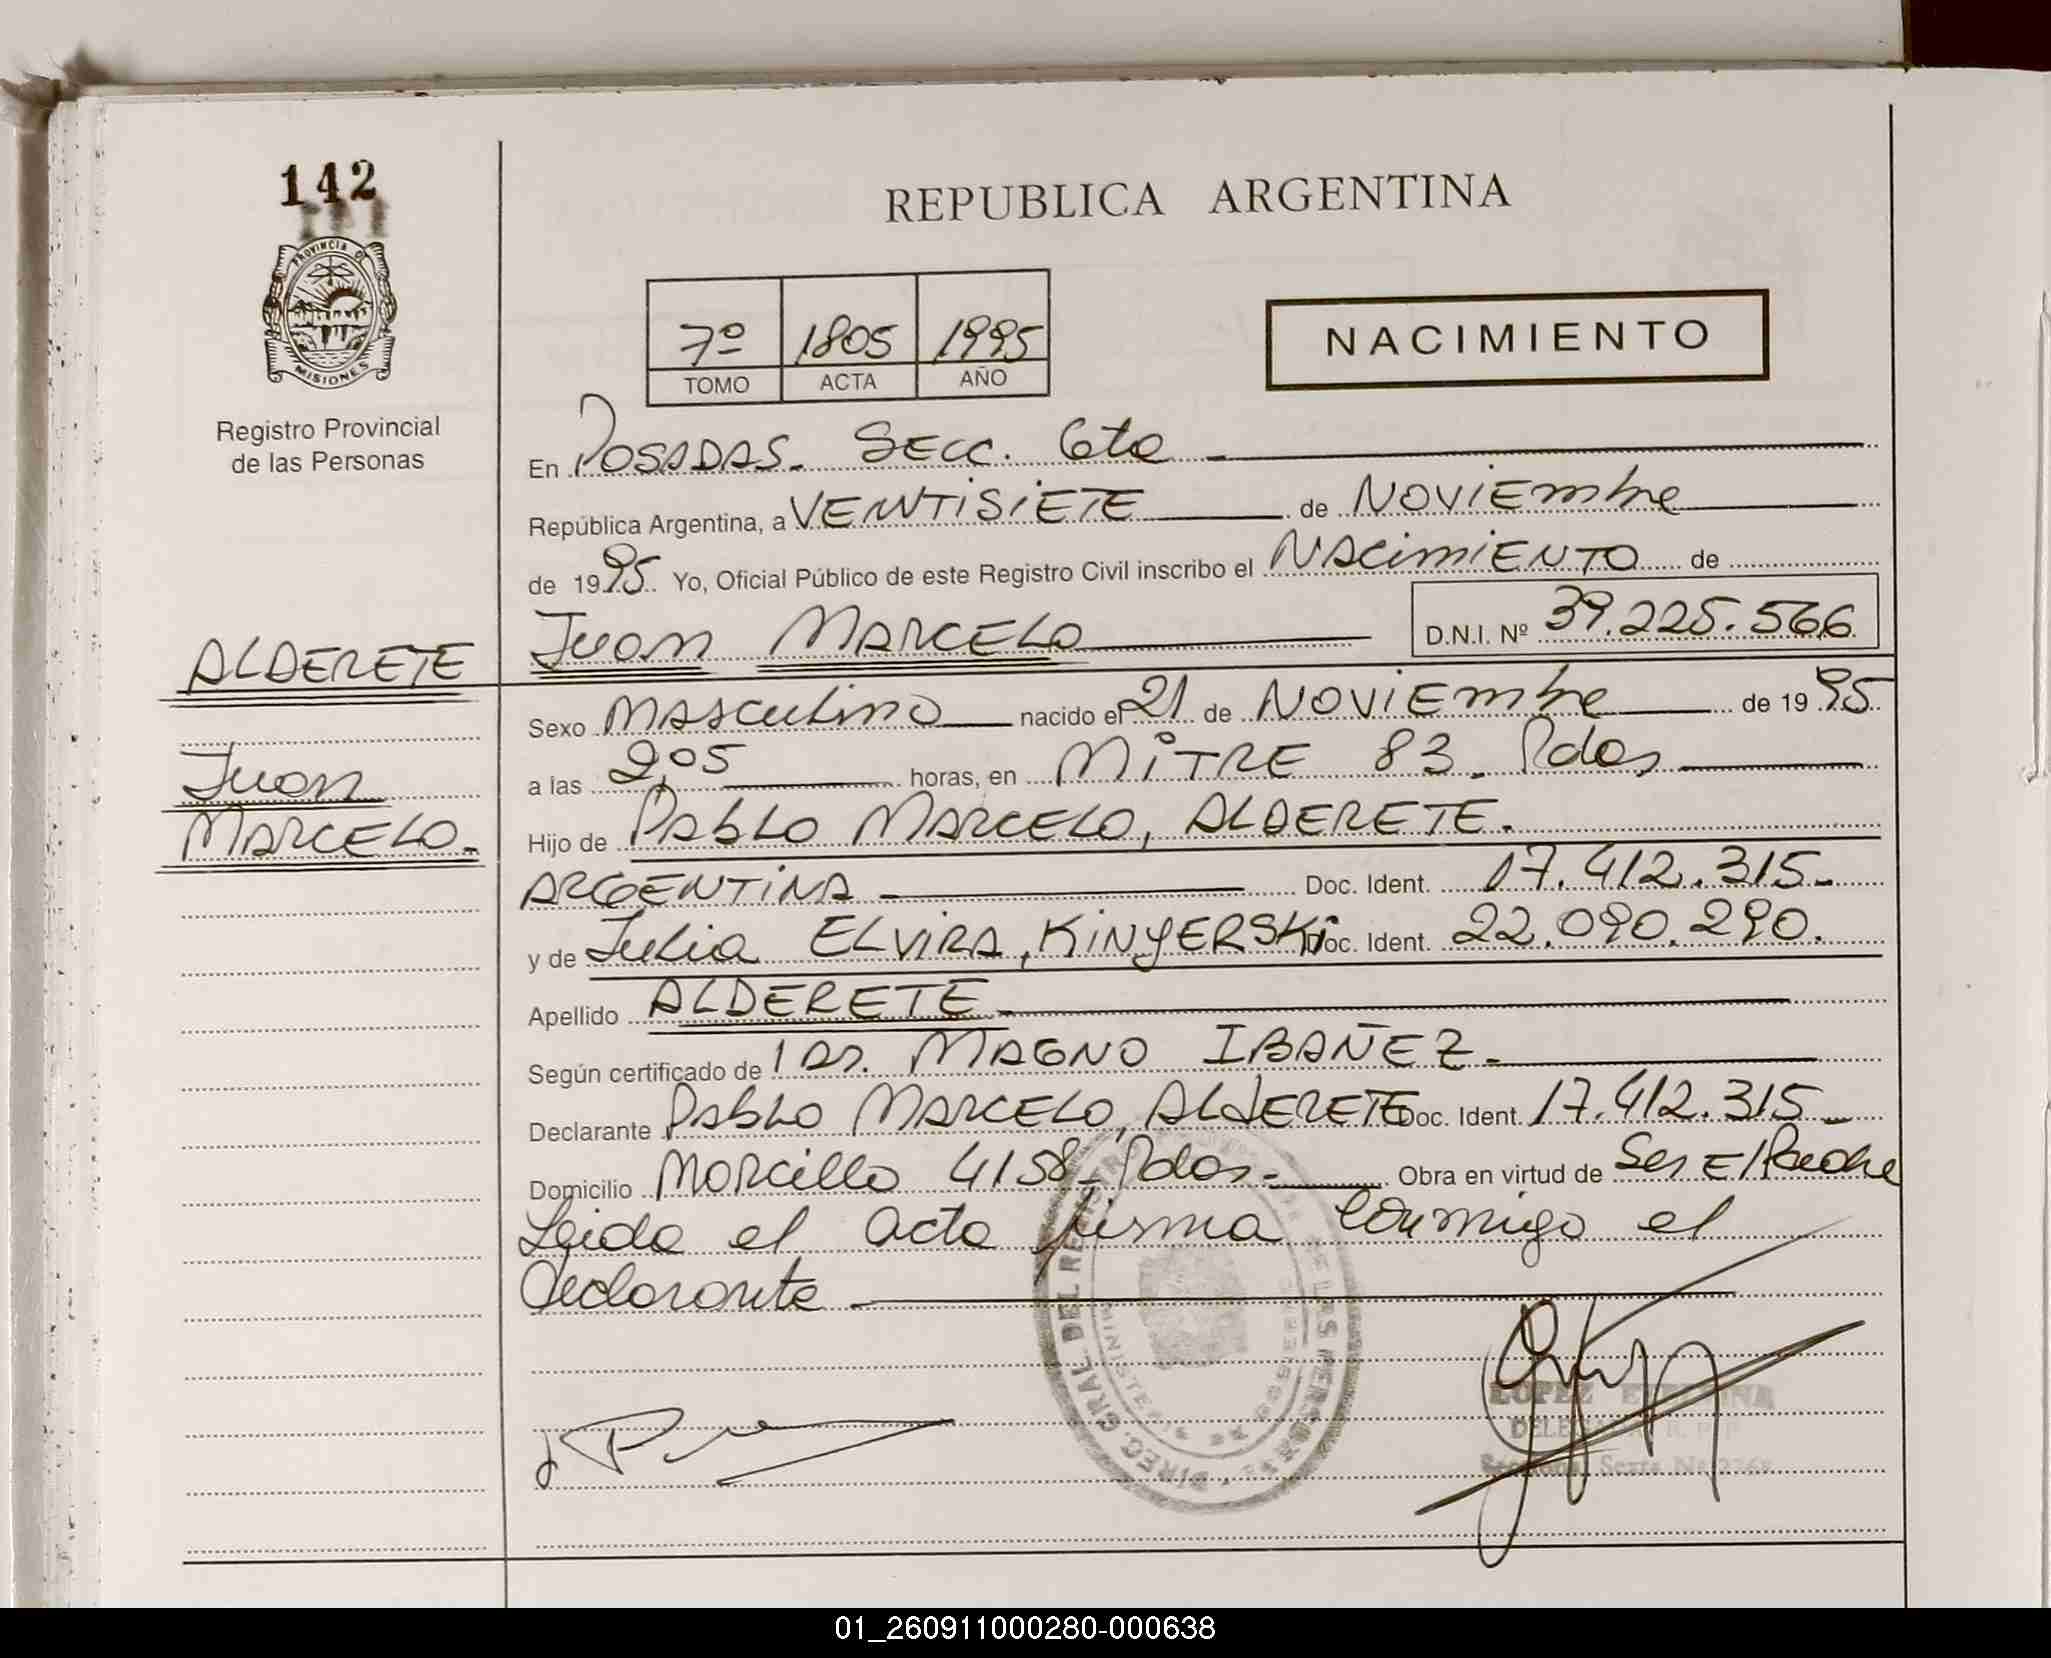 142
REPUBLICA ARGENTINA
PROVINCIA DE
MISIONES
Registro Provincial
de las Personas
7º 1805 1995
TOMO ACTA AÑO
NACIMIENTO
En POSADAS. SECC. 6ta
República Argentina, a VEINTISIETE de NOVIEmbre
de 1995. Yo, Oficial Público de este Registro Civil inscribo el NACimiENTO de
ALDERETE Juan MARCELO D.N.I. Nº 39.225.566
Sexo MAsculino nacido el 21 de NOVIEmbre de 1995
Juan a las 2,05 horas, en MiTRE 83. Pdas
MARCELO. Hijo de PAbLO MARCELO, ALDERETE.
ARGENTINA Doc. Ident. 17.412.315.
y de Julia ELVIRA, KINYERSKi Doc. Ident. 22.090.290.
Apellido ALDERETE
Según certificado de Dr. MAGNO IBAÑEZ.
Declarante PAbLO MARCELO, ALdERETE Doc. Ident. 17.412.315
Domicilio MORcillo 4158 - Pdas. Obra en virtud de Ser El Padre
Leida el acta firma conmigo el
declarante
DIREC. GRAL. DEL REGISTRO DE LAS PERSONAS
MINISTERIO DE GOBIERNO
LOPEZ
Sexta
01_260911000280-000638